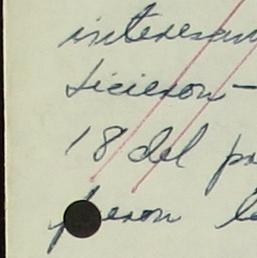 interesan
hicieron -
18 del pr
eron le